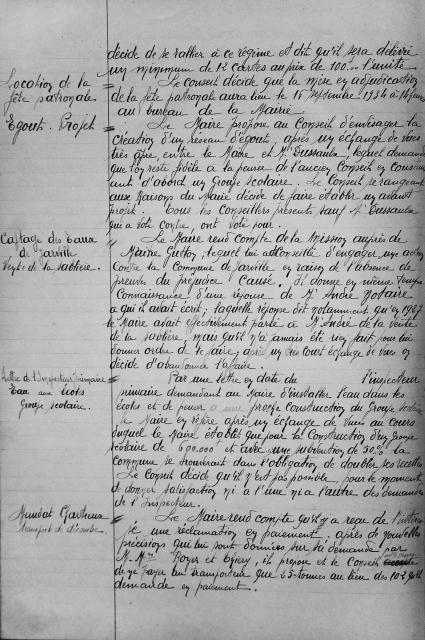 décide de se rallier à ce régime et dit qu'il sera délivré
un minimum de 12 cartes au prix de 100... l'unité
Location de la
fête patronale
Le Conseil décide que la mise en adjudication
de la fête patronale aura lieu le 15 Septembre 1934 à
au bureau de la Mairie
Egout. Projet
Le Maire propose au Conseil d'envisager la
création d'un réseau d'égout, après un échange de vues
très âpre entre le Maire et Mr Dussaulx, lequel demande
que l'on reste fidèle à la pensée de l'ancien Conseil en
d'abord un Groupe scolaire. Le Conseil se rangeant
aux raisons du Maire décide de faire établir un avant
projet. Tous les Conseillers présents, sauf Mr Dussaulx
qui a voté contre, ont voté pour.
Captage des Eaux
de Jarville
Vente de la sablière.
Le Maire rend compte de la mission auprès de
Maître lequel lui a conseillé d'engager une action
contre la Commune de Jarville en raison de l'absence de
preuve du préjudice causé. Il donne en même temps
connaissance d'une réponse de Mr André Notaire
à qui il avait écrit; laquelle réponse dit notamment qu'en 1927
le Maire avait effectivement parlé à Mr André de la vente
de la sablière, mais qu'il n'a jamais été rien fait pour lui
donner ordre de le faire, après un très court échange de vues on
décide d'abandonner l'affaire.
Lettre de l'Inspecteur Primaire
Eau aux écoles
Groupe scolaire.
Par une lettre en date du l'inspecteur
primaire demandant au Maire d'installer l'eau dans les
écoles et de penser à une proche construction du Groupe scolaire
le Maire en réfère après un échange de vues au cours
duquel le Maire établit que pour la construction d'un groupe
scolaire de 600.000 et avec une subvention de 50% la
commune se trouverait dans l'obligation de doubler ses recettes
Le Conseil décide qu'il n'est pas possible, pour le moment
de donner satisfaction ni à l'une ni à l'autre des demandes
de l'Inspecteur.
Mandat
transport de
Le Maire rend compte qu'il a reçu de
une réclamation en paiement; après de nouvelles
précisions qui lui sont données sur sa demande par
M. Mrs Royer et il propose et le Conseil
de ne payer au transporteur que 85 tonnes au lieu des 102 qu'il
demande en paiement.